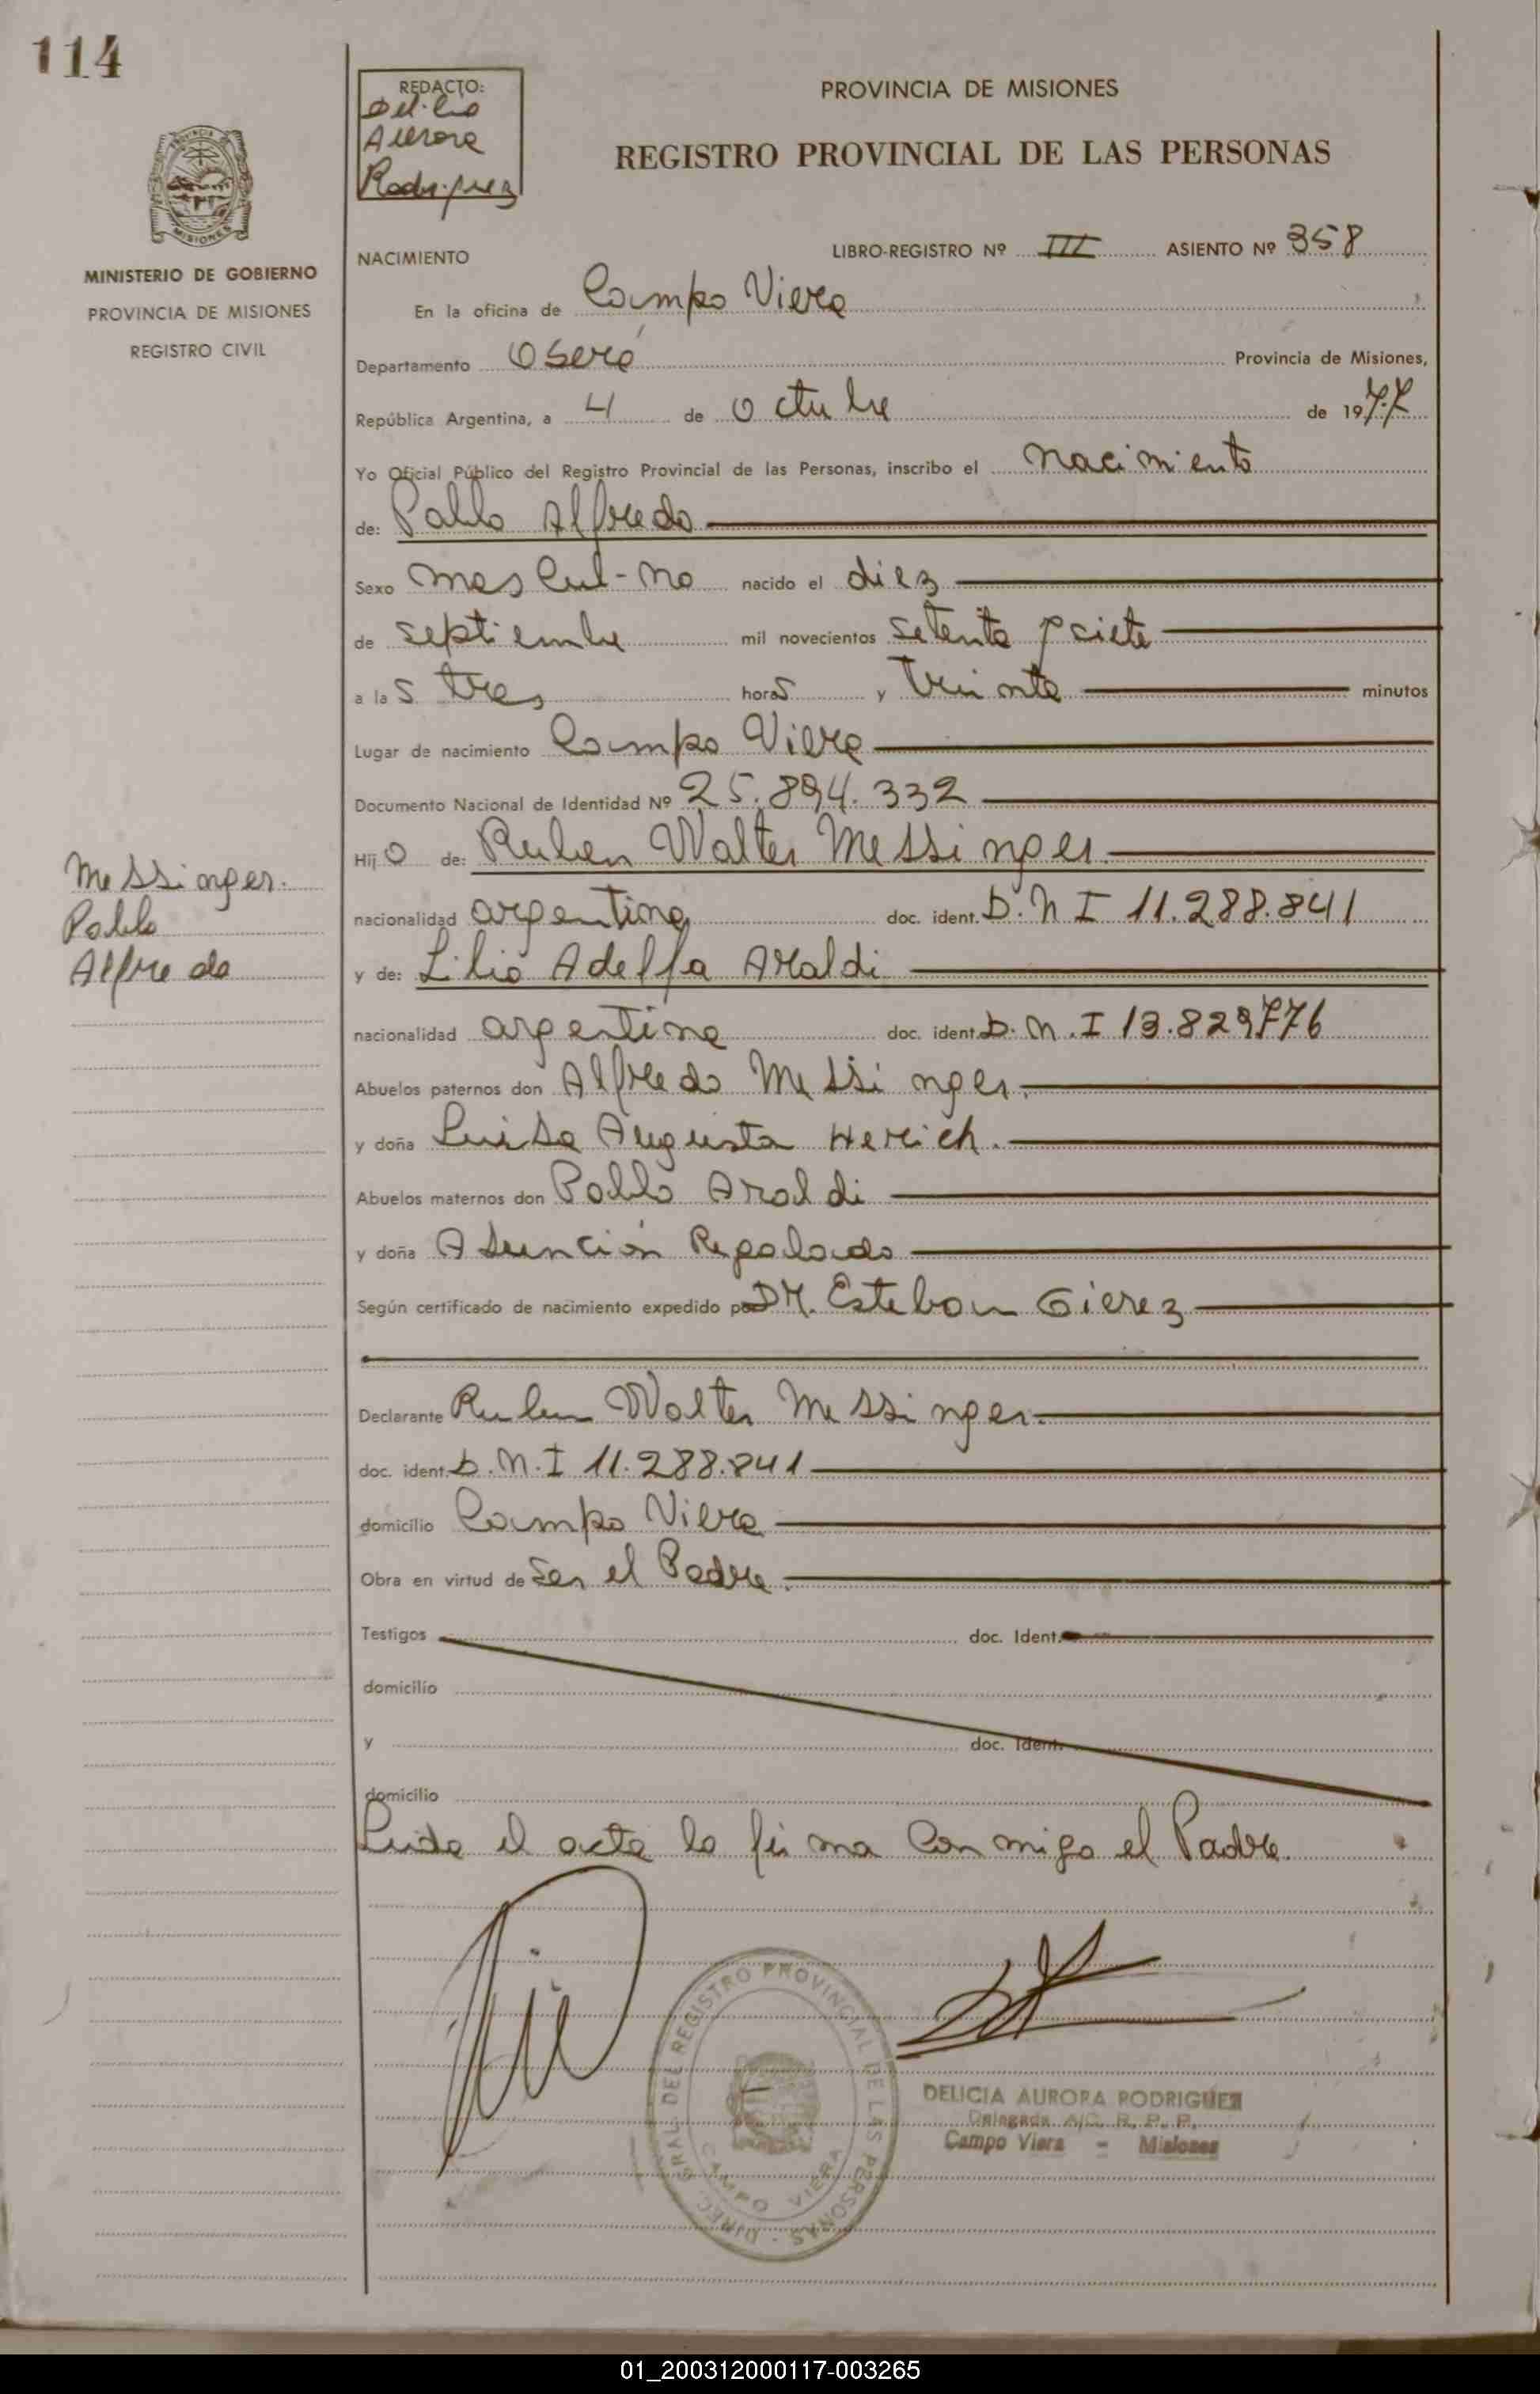 114
REDACTO:
Delicia
Aurora
Rodriguez
PROVINCIA DE MISIONES
REGISTRO PROVINCIAL DE LAS PERSONAS
MISIONES
MINISTERIO DE GOBIERNO
PROVINCIA DE MISIONES
REGISTRO CIVIL
NACIMIENTO LIBRO-REGISTRO Nº III ASIENTO Nº 358
En la oficina de Campo Viera
Departamento Oberá Provincia de Misiones,
República Argentina, a 4 de octubre de 1977
Yo Oficial Público del Registro Provincial de las Personas, inscribo el nacimiento
de: Pablo Alfredo
Sexo masculino nacido el diez
de septiembre mil novecientos setenta y siete
a las tres horas y treinta minutos
Lugar de nacimiento Campo Viera
Documento Nacional de Identidad Nº 25.894.332
Hijo de: Ruben Walter Messinger.
nacionalidad argentina doc. ident. D.N I 11.288.841
y de: Lilia Adelfa Araldi
nacionalidad argentina doc. ident. D.N.I 13.829776
Abuelos paternos don Alfredo Messinger.
y doña Luisa Augusta Hereich.
Abuelos maternos don Pablo Araldi
y doña Asunción Regalado
Según certificado de nacimiento expedido por DR. Esteban Gierez
Declarante Ruben Walter Messinger.
doc. ident. D.N.I 11.288.841
domicilio Campo Viera
Obra en virtud de ser el Padre.
Testigos doc. Ident.
domicilio
y doc. Ident.
domicilio
Leida el acta la firma conmigo el Padre.
Messinger.
Pablo
Alfredo
DIREC. GRAL. DEL REGISTRO PROVINCIAL DE LAS PERSONAS
CAMPO VIERA
DELICIA AURORA RODRIGUEZ
Delegada A/C. R. P. P.
Campo Viera - Misiones
01_200312000117-003265